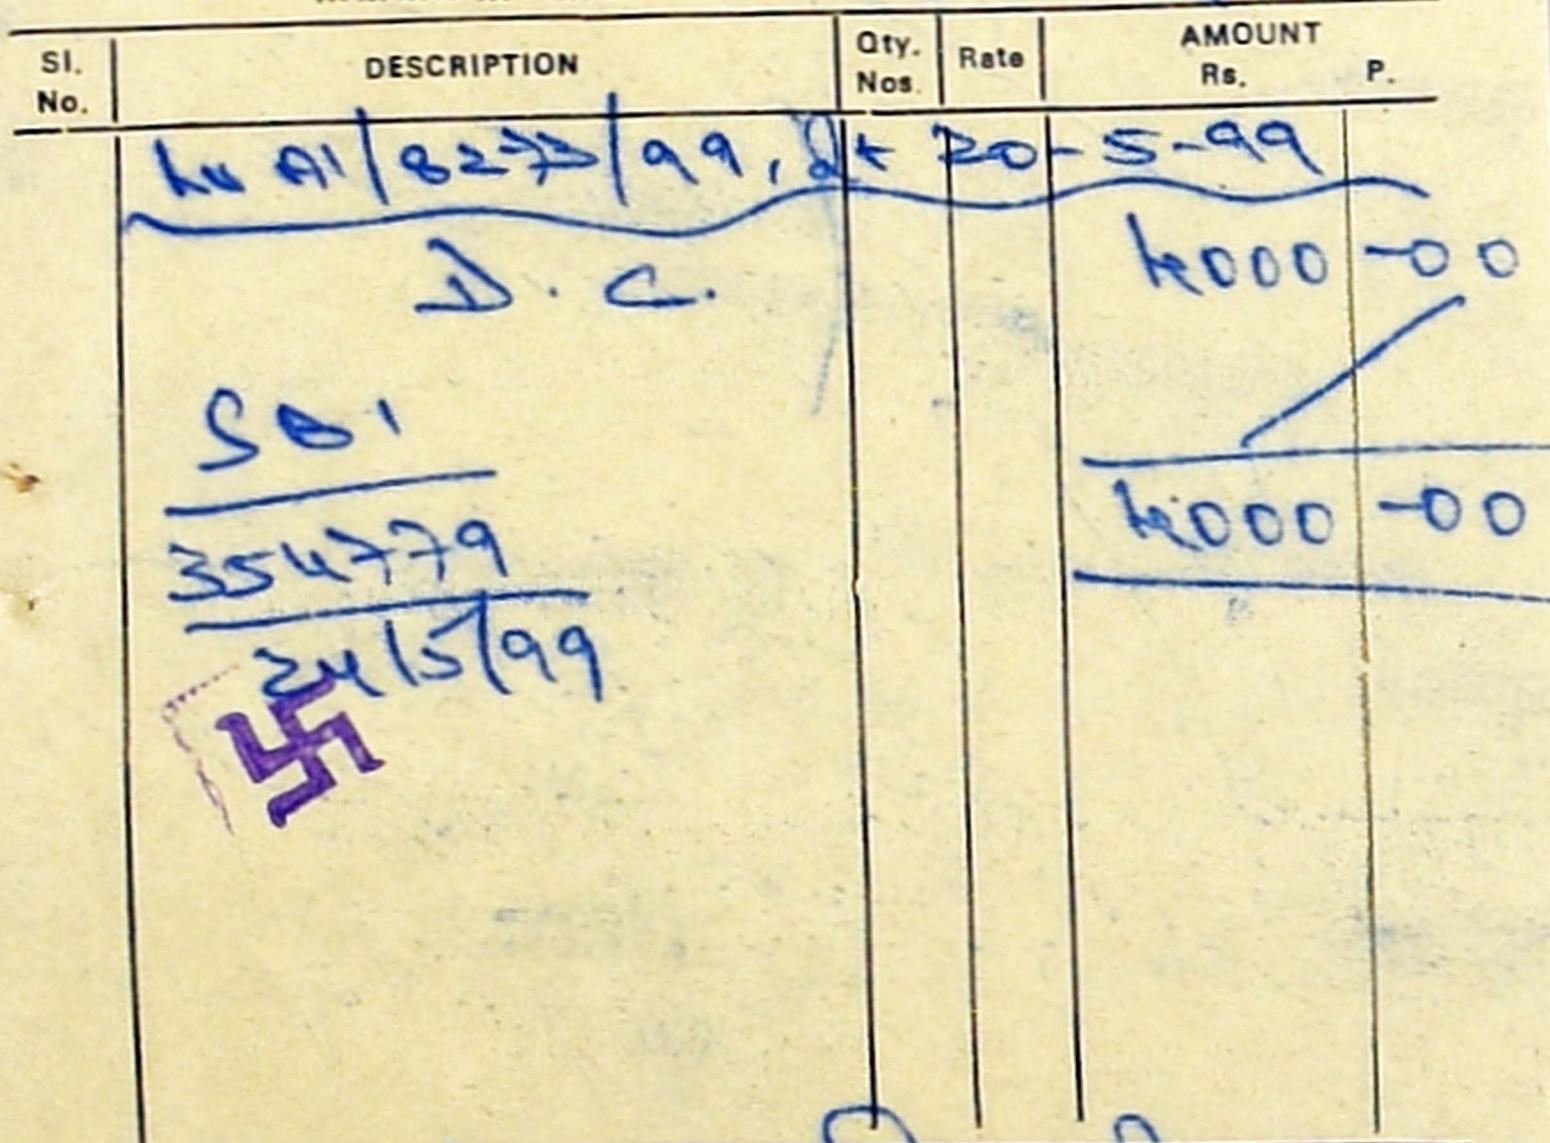 Sl. No. DESCRIPTION Qty. Nos. Rate AMOUNT Rs. P.
A1/8273/99, dt 20-5-99
D.C. 4000-00
SBI
4000-00
354779
24/5/99